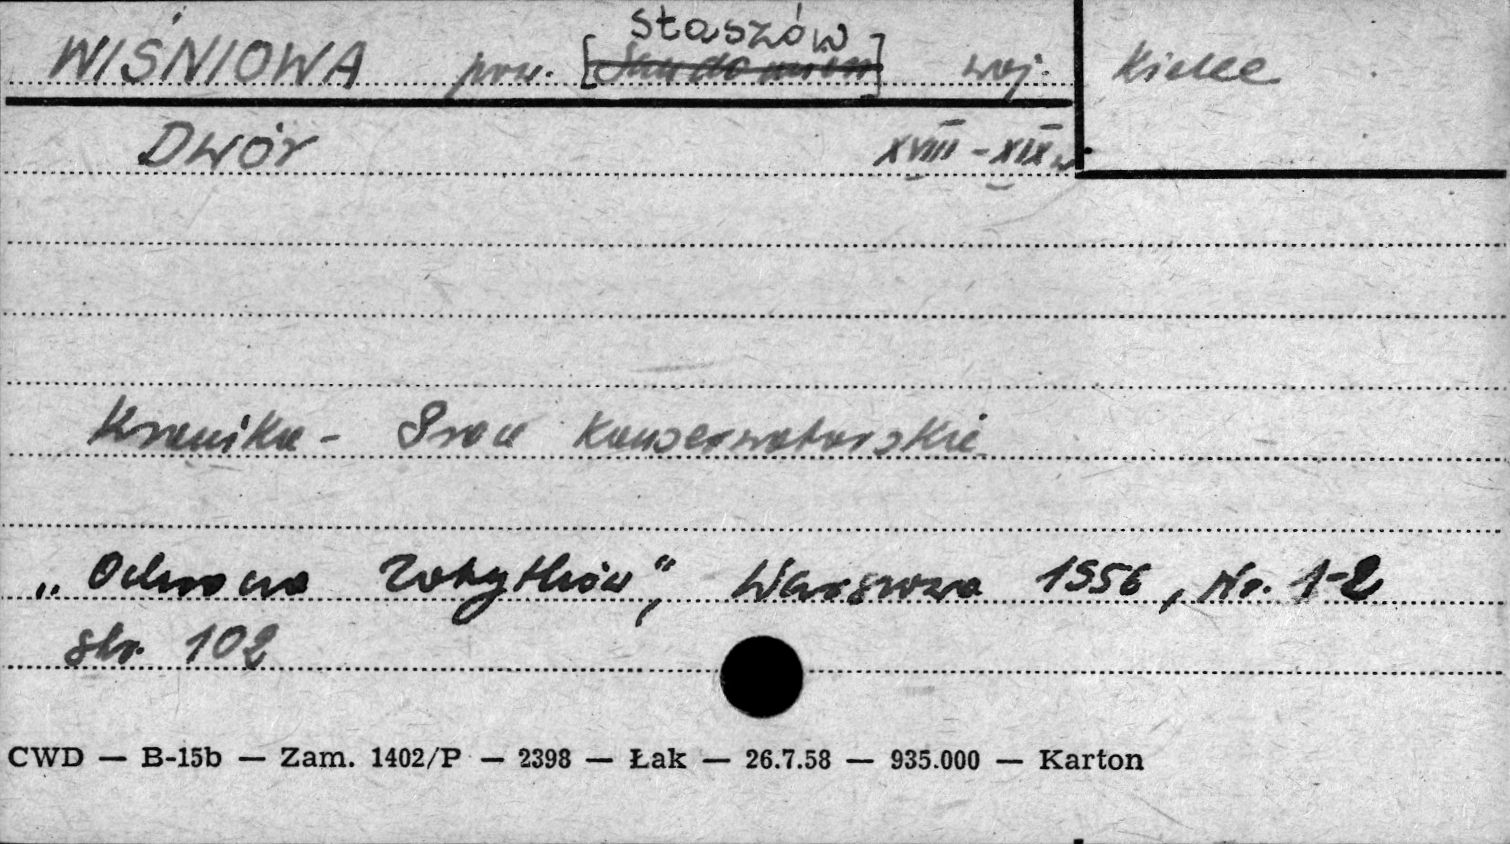 Staszów
WIŚNIOWA pow. [Sandomierz] woj. Kielce
Dwór XVIII - XIX w
Kronika - Prace konserwatorskie
„Ochrona Zabytków", Warszawa 1956, Nr. 1-2
str. 102
CWD — B-15b — Zam. 1402/P — 2398 — Łak — 26.7.58 — 935.000 — Karton